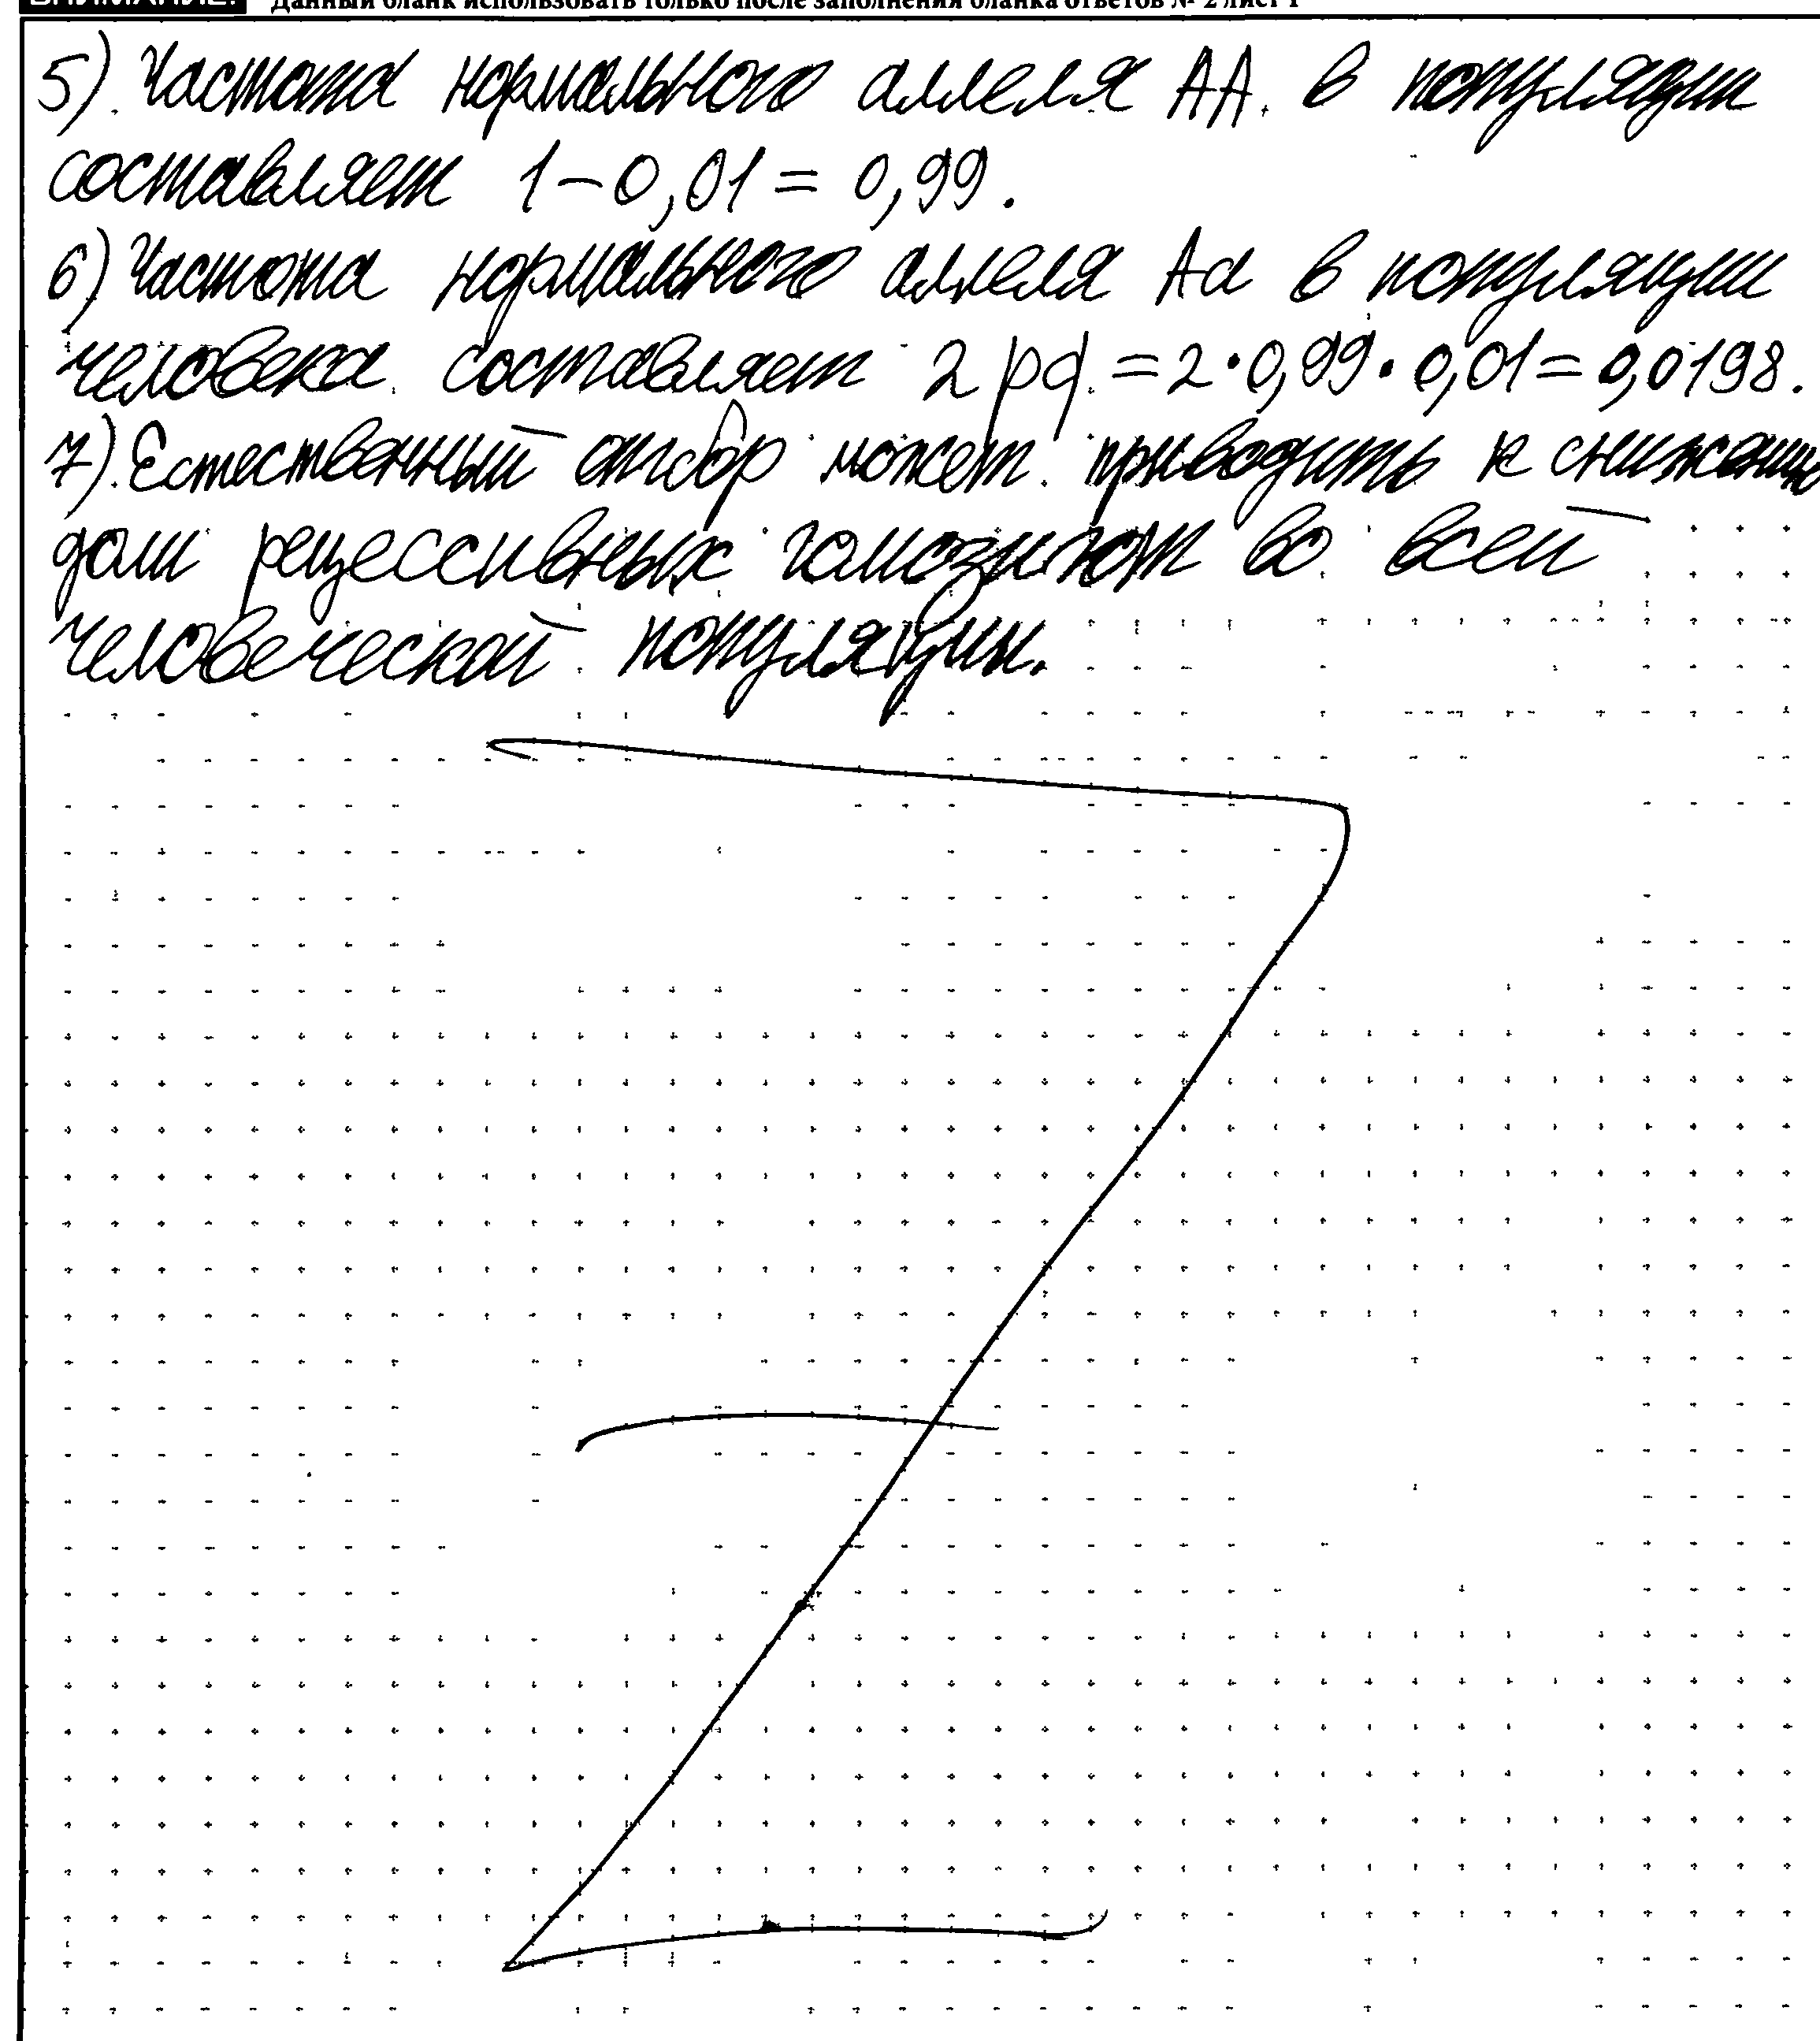 ВНИМАНИЕ! Данный бланк использовать только после заполнения бланка ответов № 2 лист 1
5). Частота нормального аллеля АА. в популяции
составляет 1-0,01 = 0,99.
6) Частота нормального аллеля Аа в популяции
человека составляет 2pq = 2·0,99·0,01 = 0,0198.
7). Естественный отбор может приводить к снижению
доли рецессивных гомозигот во всей
человеческой популяции.